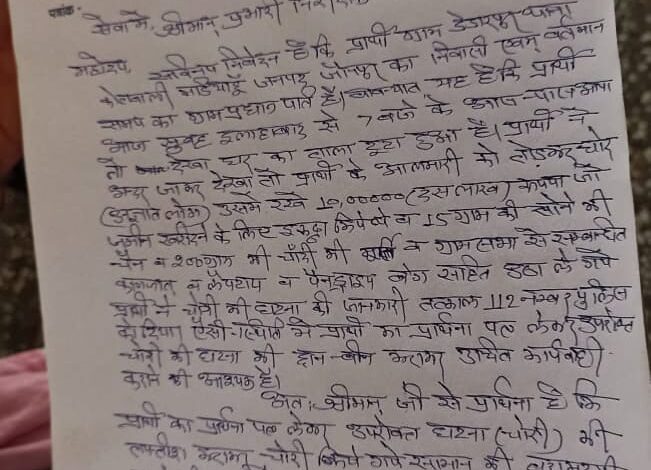 सेवा में, श्रीमान् प्रभारी
महोदय, सविनय निवेदन है कि प्रार्थी ग्राम थाना
कोतवाली मड़ियाहूँ जनपद जौनपुर का निवासी एवम् वर्तमान
समय का ग्राम प्रधान पति है। यह है कि प्रार्थी
आज सुबह इलाहाबाद से 7 बजे के आस-पास आया
तो देखा घर का ताला टूटा हुआ है। प्रार्थी ने
अन्दर जाकर देखा तो प्रार्थी के आलमारी को तोड़कर चोर
(अज्ञात लोग) उसमें रखे 10,00000 (दस लाख) रूपया जो
जमीन खरीदने के लिए इकट्ठा किये थे व 15 ग्राम की सोने की
चैन व 200 ग्राम की चाँदी की व ग्राम सभा से सम्बन्धित
कागजात व लैपटाप व पैनड्राइव बैग सहित उठा ले गये
प्रार्थी ने चोरी की घटना की जानकारी तत्काल 112 नम्बर पुलिस
को दिया ऐसी स्थिति में प्रार्थी का प्रार्थना पत्र लेकर उपरोक्त
चोरी की घटना की छान-बीन कराकर उचित कार्यवाही
कराने की आवश्यक है।
अतः श्रीमान् जी से प्रार्थना है कि
प्रार्थी का प्रार्थना पत्र लेकर उपरोक्त घटना (चोरी) की
तफ्तीश कराकर चोरी किये गये सामान की